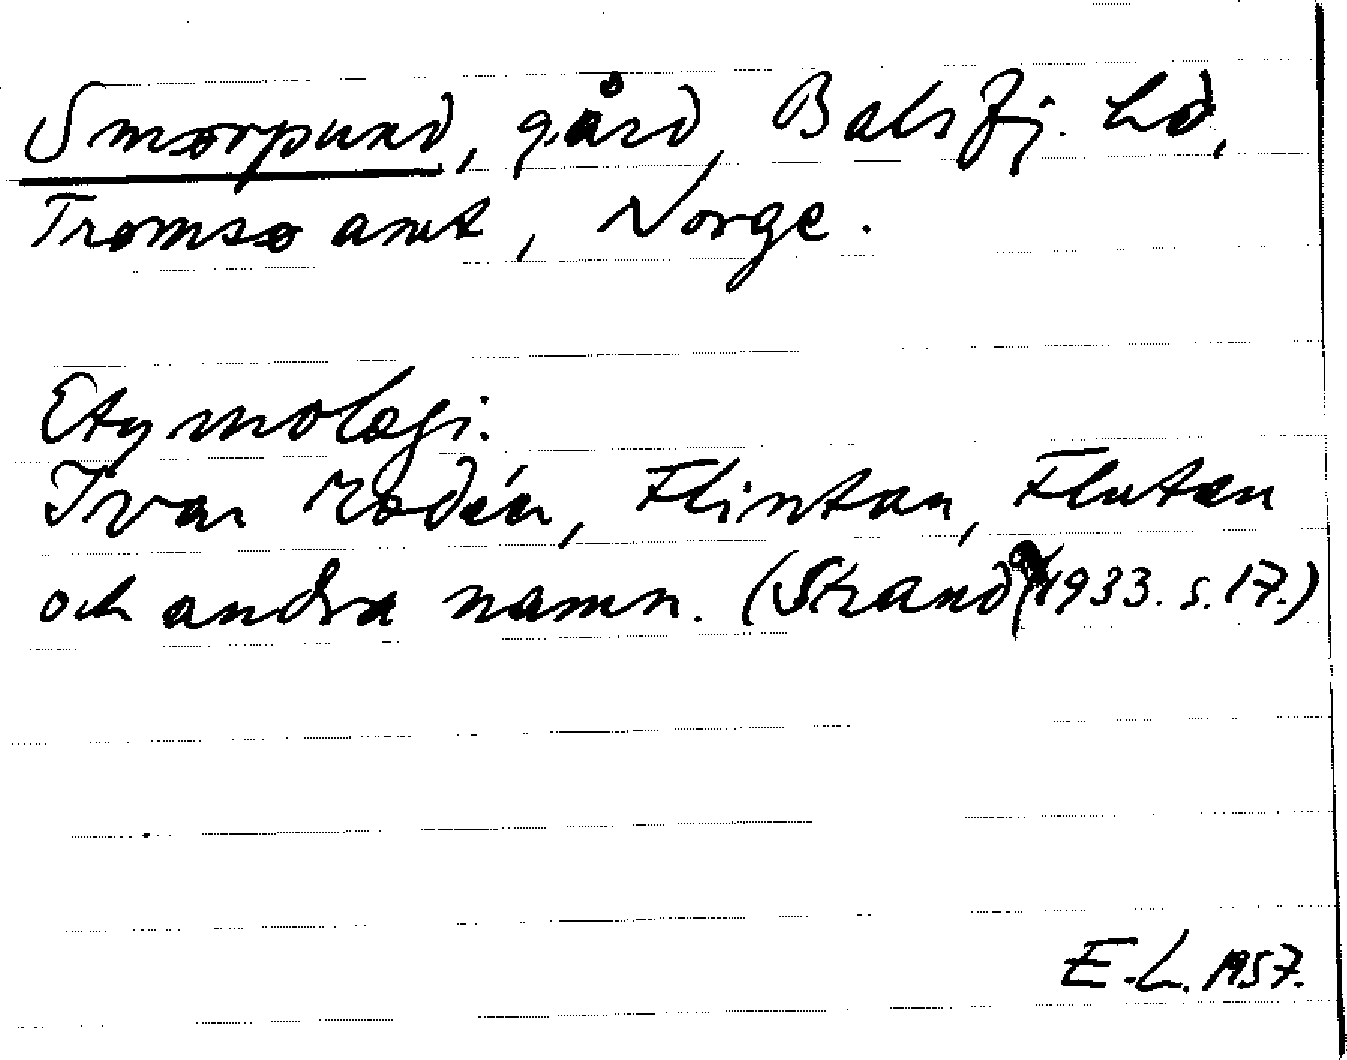 Smørpund, gård, Balsfj. hd,
Tromsø amt, Norge.
Etymologi.
Ivar Modéer, Flintan, Flutan
och andra namn. (Strand 1933. s. 17.)
E.L. 1957.